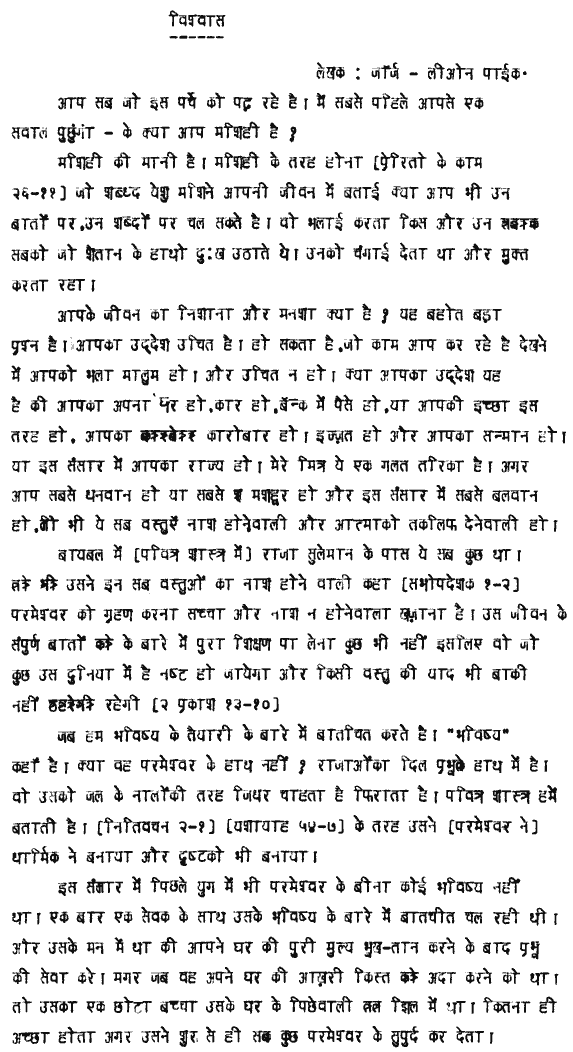 विश्वास
लेखक : जॉर्ज - लीओन पाईक.
आप सब जो इस पर्चे को पढ़ रहे है। मैं सबसे पहिले आपसे एक
सवाल पुछुंगा - के क्या आप मशिही है ?
मशिही की मानी है। मशिही के तरह होना [प्रेरितो के काम
२६-११] जो शब्ध्द येशु मशिने आपनी जीवन में बताई क्या आप भी उन
बातों पर,उन शब्दों पर चल सकते है। वो भलाई करता किस और उन
सबको जो शैतान के हाथो दु:ख उठाते थे। उनको चंगाई देता था और मुक्त
करता रहा।
आपके जीवन का निशाना और मनशा क्या है ? यह बहोत बड़ा
प्रश्न है। आपका उद्देश उचित है। हो सकता है,जो काम आप कर रहे है देखने
में आपको भला मालुम हो। और उचित न हो। क्या आपका उद्देश यह
है की आपका अपना घर हो,कार हो,बॅन्क में पैसे हो,या आपकी इच्छा इस
तरह हो, आपका कारोबार हो। इज्जत हो और आपका सन्मान हो।
या इस संसार में आपका राज्य हो। मेरे मित्र ये एक गलत तरिका है। अगर
आप सबसे धनवान हो या सबसे मशहूर हो और इस संसार में सबसे बलवान
हो,तो भी ये सब वस्तुएँ नाश होनेवाली और आत्माको तकलिफ देनेवाली हो।
बायबल में [पवित्र शास्त्र में] राजा सुलेमान के पास ये सब कुछ था।
उसने इन सब वस्तुओं का नाश होने वाली कहा [सभोपदेशक १-२]
परमेश्वर को गृहण करना सच्चा और नाश न होनेवाला खज़ाना है। उस जीवन के
संपुर्ण बातों के बारे में पुरा शिक्षण पा लेना कुछ भी नहीं इसलिए वो जो
कुछ उस दुनिया में है नष्ट हो जायेगा और किसी वस्तु की याद भी बाकी
नहीं रहेगी [२ प्रकाश १३-१०]
जब हम भविष्य के तैयारी के बारे में बातचित करते है। "भविष्य"
कहाँ है। क्या वह परमेश्वर के हाथ नहीं ? राजाओंका दिल प्रभुके हाथ में है।
वो उसको जल के नालोंकी तरह जिधर चाहता है फिराता है। पवित्र शास्त्र हमें
बताती है। [नितिवचन २-१] [यशायाह ५४-७] के तरह उसने [परमेश्वर ने]
धार्मिक ने बनाया और दृष्टको भी बनाया।
इस संसार में पिछले युग में भी परमेश्वर के बीना कोई भविष्य नहीं
था। एक बार एक सेवक के साथ उसके भविष्य के बारे में बातचीत चल रही थी।
और उसके मन में था की आपने घर की पुरी मुल्य भुख-तान करने के बाद प्रभु
की सेवा करे। मगर जब वह अपने घर की आखरी किस्त अदा करने को था।
तो उसका एक छोटा बच्चा उसके घर के पिछेवाली झिल में था। कितना ही
अच्छा होता अगर उसने शुरु से ही सब कुछ परमेश्वर के सुपुर्द कर देता।